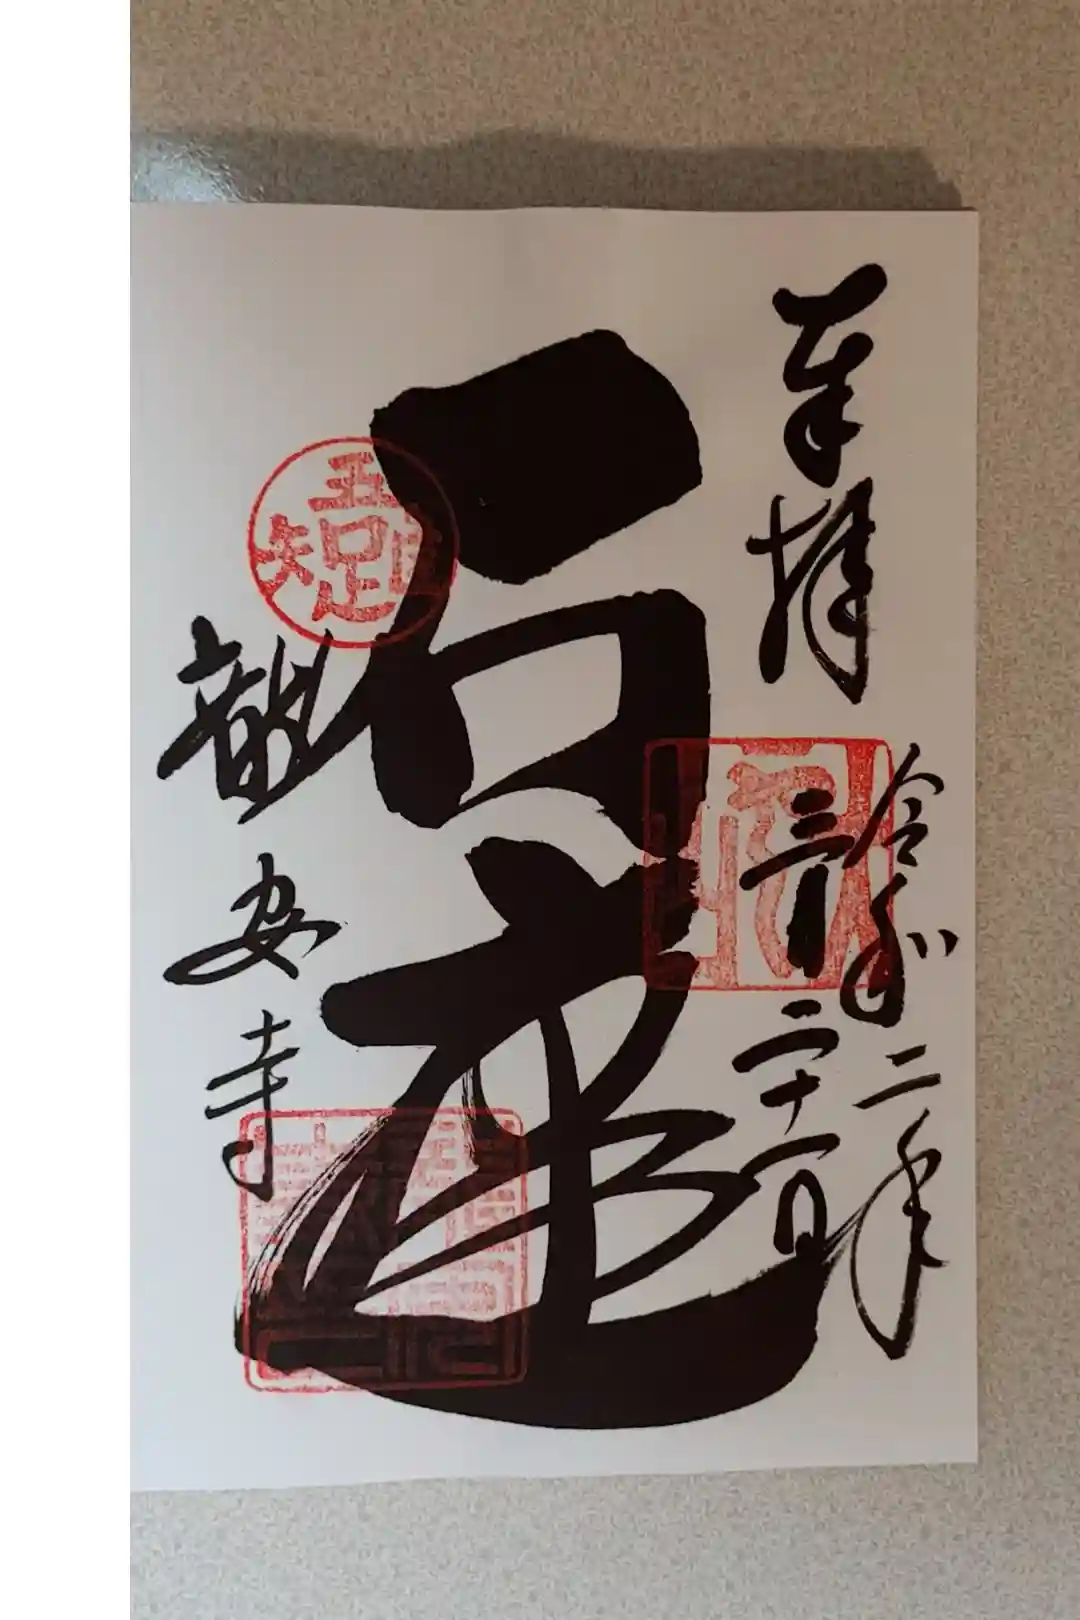 奉拝
令和二年
三月二十一日
石庭
龍安寺
吾唯足知